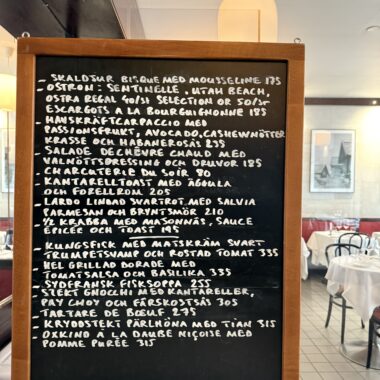 - SKALDJUR BISQUE MED MOUSSELINE 175
- OSTRON: SENTINELLE, UTAH BEACH,
OSTRA REGAL 40/ST SELECTION OR 50/ST
ESCARGOTS A LA BOURGUIGNONNE 185
- HAVSKRÄFTCARPACCIO MED
PASSIONSFRUKT, AVOCADO, CASHEWNÖTTER
KRASSE OCH HABANEROSÅS 235
- SALADE DECHÈVRE CHAUD MED
VALNÖTTSDRESSING OCH DRUVOR 185
- CHARCUTERIE DU SOIR 80
- KANTARELLTOAST MED ÄGGULA
OCH FORELLROM 205
- LARDO LINDAD SVARTROT MED SALVIA
PARMESAN OCH BRYNTSMÖR 210
- ½ KRABBA MED MAJONNÄS, SAUCE
EPICÉE OCH TOAST 195
- KUNGSFISK MED MATSKRÄM SVART
TRUMPETSVAMP OCH ROSTAD TOMAT 335
- HEL GRILLAD DORADE MED
TOMATSALSA OCH BASILIKA 335
- SYDFRANSK FISKSOPPA 255
- STEKT GNOCCHI MED KANTARELLER,
PAK CHOY OCH FÅRSKOSTSÅS 305
- TARTARE DE BŒUF 275
- KRYDDSTEKT PÄRLHÖNA MED TIAN 315
- OXKIND A LA DAUBE NIÇOISE MED
POMME PURÉE 315